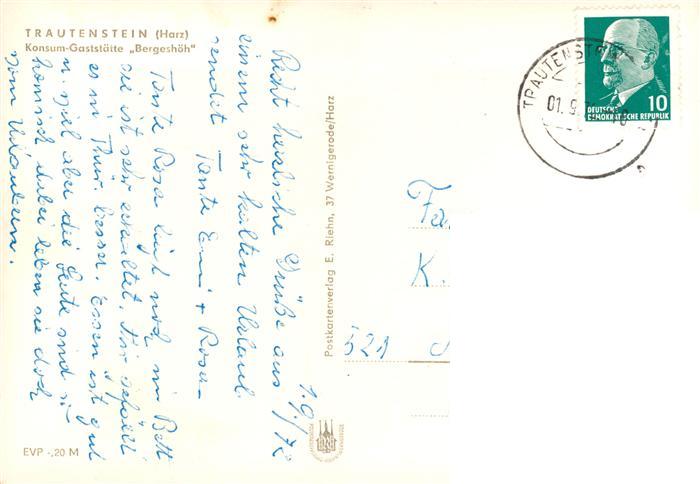 TRAUTENSTEIN (Harz)
Konsum-Gaststätte „Bergeshöh"
1.9./72
Recht herzliche Grüße aus
einem sehr kalten Urlaub
sendet Tante Emmi + Rosa.
Tante Rosa liegt noch im Bett
sie ist sehr erkältet. Mir gefällt
es in Thür. besser. Essen ist gut
u. viel aber die Leute sind so
komisch dabei leben sie doch
vom Urlaubern.
EVP -,20 M
Postkartenverlag E. Riehn, 37 Wernigerode/Harz
TRAUTENST
01. 9.
10
DEUTSCHE
DEMOKRATISCHE REPUBLIK
Fa
K.
521